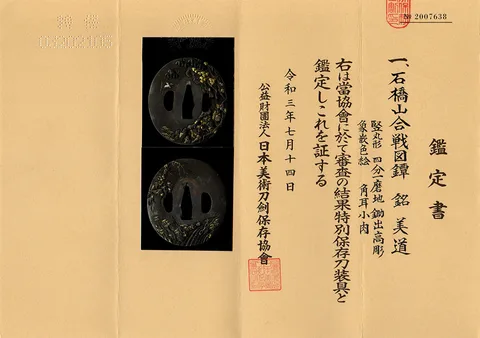 № 2007638
鑑定書
一、石橋山合戦図鐔 銘 美道
竪丸形 四分一磨地 鋤出高彫
象嵌色絵 角耳小肉
右は當協會に於て審査の結果特別保存刀装具と
鑑定しこれを証する
令和三年七月十四日
公益財團法人 日本美術刀劍保存協會